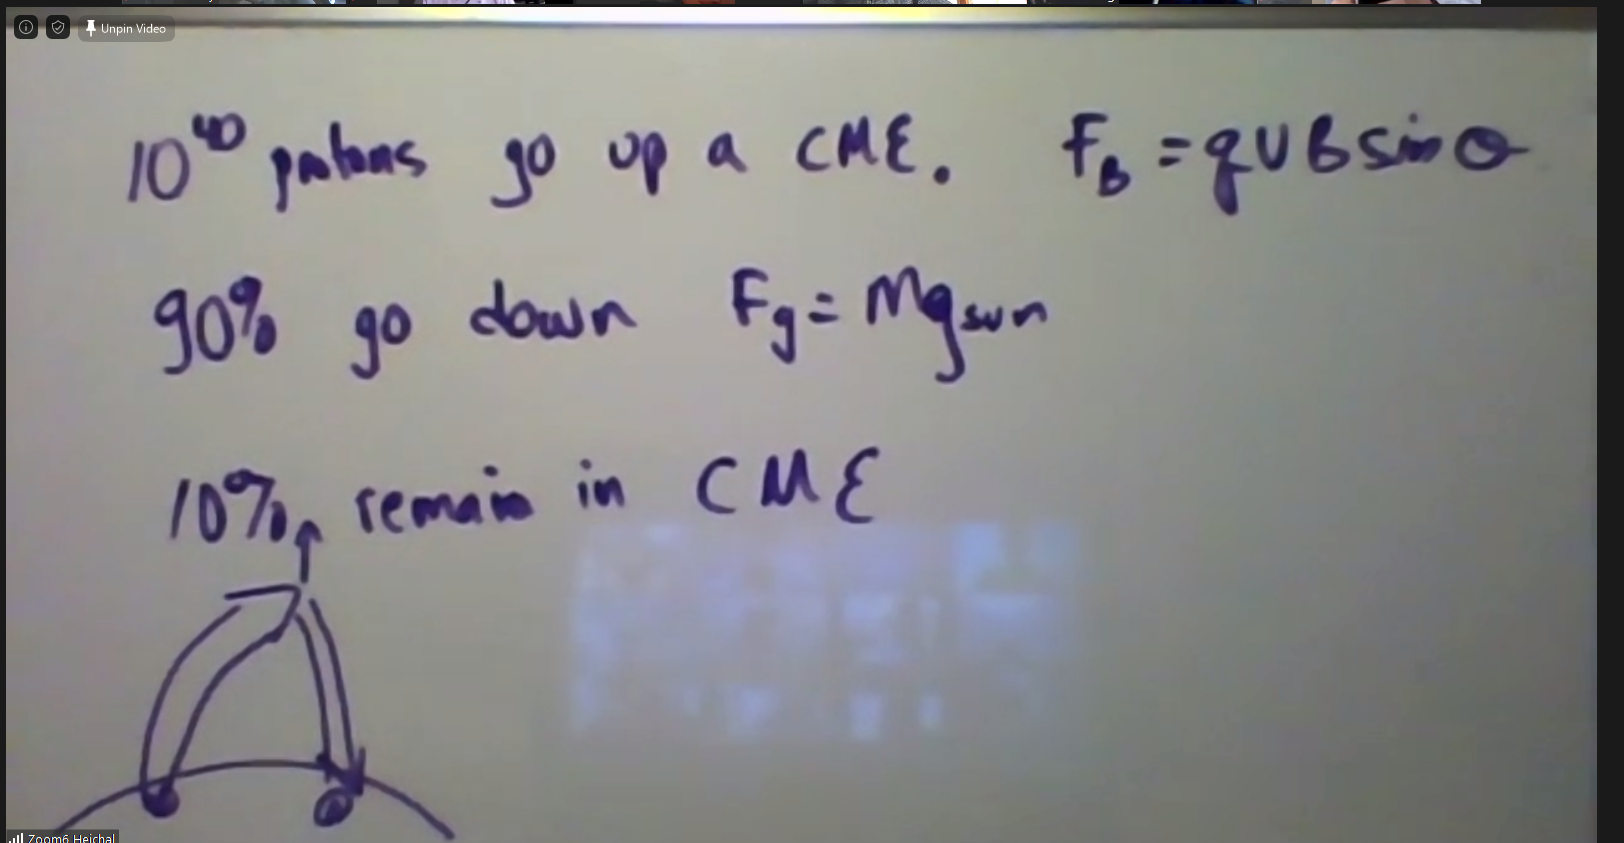 Unpin Video
10⁴⁰ protons go up a CME. F_B = qvB sin θ
90% go down F_g = Mg_sun
10% remain in CME
Zoom6 Heichal